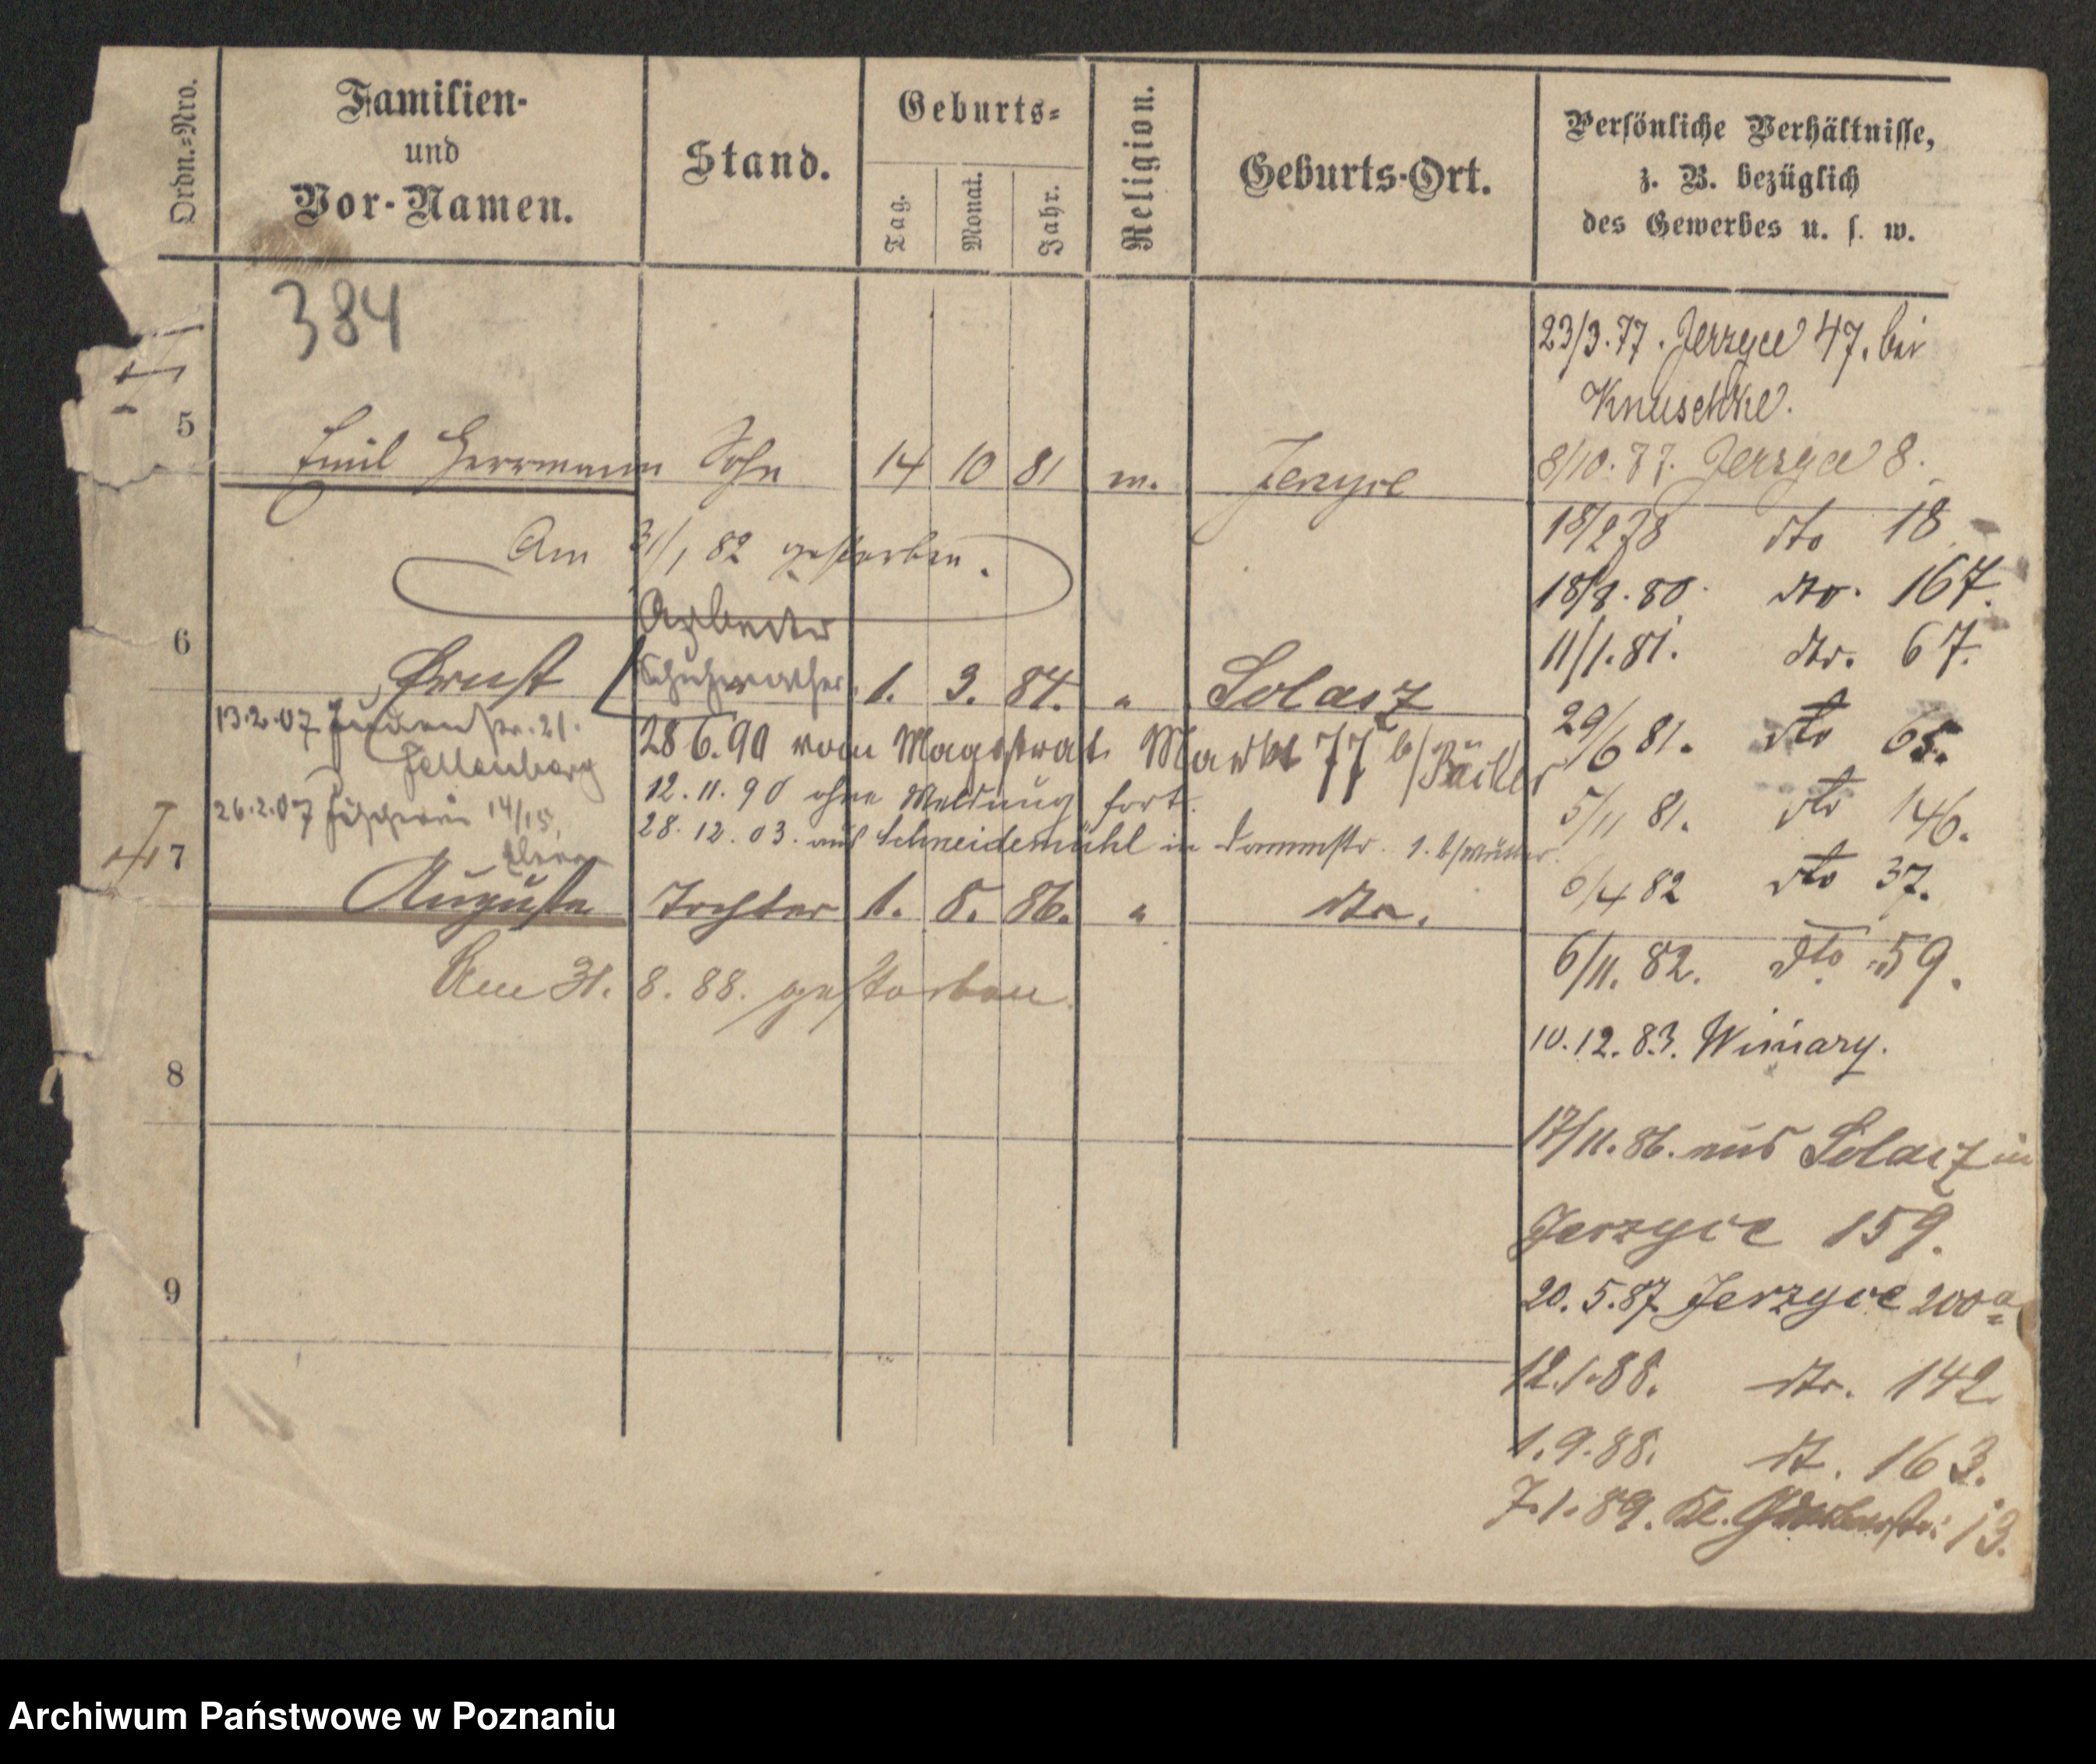 Ordn.-Nro.
Familien-
und
Vor-Namen.
Stand.
Geburts-
Tag.
Monat.
Jahr.
Religion.
Geburts-Ort.
Persönliche Verhältnisse,
z. B. bezüglich
des Gewerbes u. s. w.
384
5 Emil Herrmann Sohn 14 10 81 m. Jerzyce
Am 31/1 82 gestorben.
Arbeiter
6 Ernst Schuhmacher 1. 3. 84. " Solacz
13.2.07 Judenstr. 21.
Fellenberg
26.2.07 Fischerei 14/15,
28 6.90 vom Magistrat Markt 77 b/ Päckler
12.11.90 ohne Meldung fort.
28.12.03. aus Schneidemühl in Dammstr. 1. b/Müller.
7 Auguste Tochter 1. 8. 86. " dto.
Am 31. 8. 88. gestorben.
8
9
23/3.77. Jerzyce 47. bei
Knuschke.
8/10.77. Jerzyce 8.
18/2 78 dto 18
18/8.80. dto. 167.
11/1.81. dto. 67.
29/6 81. dto 65.
5/11 81. dto 146.
6/4 82 dto 37.
6/11. 82. dto 59.
10.12.83. Winiary.
17/11.86. aus Solacz in
Jerzyce 159.
20.5.87 Jerzyce 200a
12.1.88. dto. 142
1.9.88. dt. 163.
7.1.89. Kl. Gerberstr. 13.
Archiwum Państwowe w Poznaniu